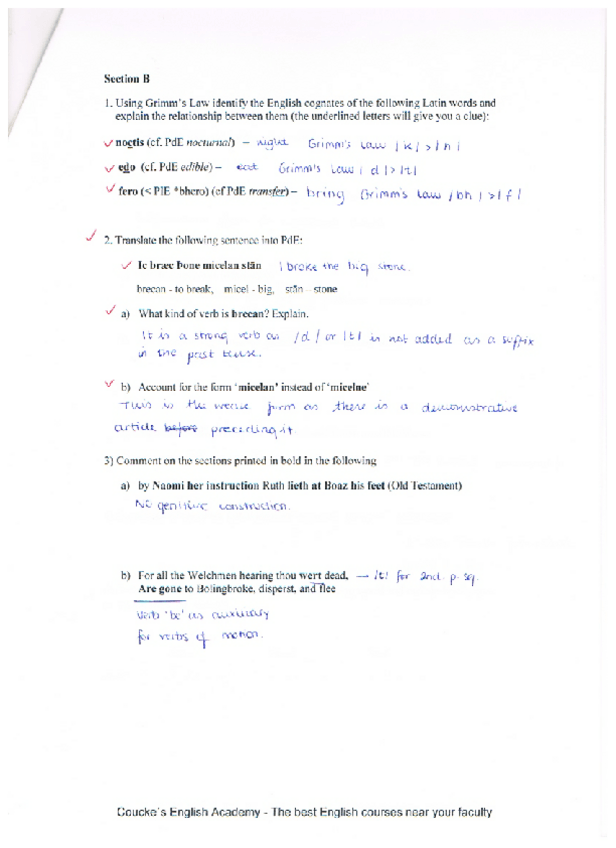 Section B
1. Using Grimm's Law identify the English cognates of the following Latin words and
explain the relationship between them (the underlined letters will give you a clue):
noctis (cf. PdE nocturnal) – night Grimm's Law /k/ > /h/
edo (cf. PdE edible) – eat Grimm's Law /d/ > /t/
fero (< PIE *bhero) (cf PdE transfer) – bring Grimm's Law /bh/ > /f/
2. Translate the following sentence into PdE:
Ic bræc Þone micelan stān I broke the big stone.
brecan - to break, micel - big, stān – stone
a) What kind of verb is brecan? Explain.
It is a strong verb as /d/ or /t/ is not added as a suffix
in the past tense.
b) Account for the form 'micelan' instead of 'micelne'
This is the weak form as there is a demonstrative
article before preceding it.
3) Comment on the sections printed in bold in the following
a) by Naomi her instruction Ruth lieth at Boaz his feet (Old Testament)
No genitive construction.
b) For all the Welchmen hearing thou wert dead, → /t/ for 2nd. p. sg.
Are gone to Bolingbroke, disperst, and flee
Verb 'be' as auxiliary
for verbs of motion.
Coucke's English Academy - The best English courses near your faculty